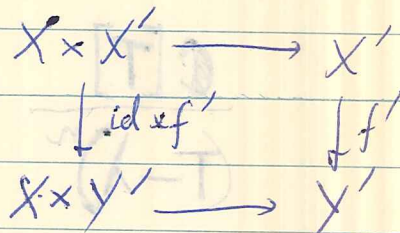 X × X' → X'
↓ id × f' ↓ f'
X × Y' → Y'